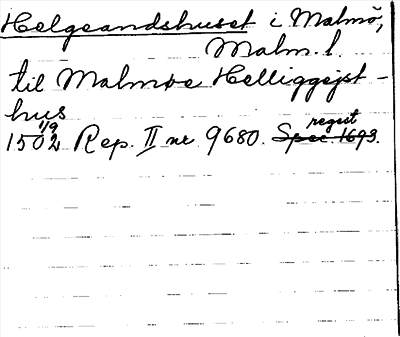 Helgeandshuset i Malmö,
Malm. l.
til Malmøe Helliggejst-
hus
1502 1/9 Rep. II nr 9680. Spec. 1693. regest